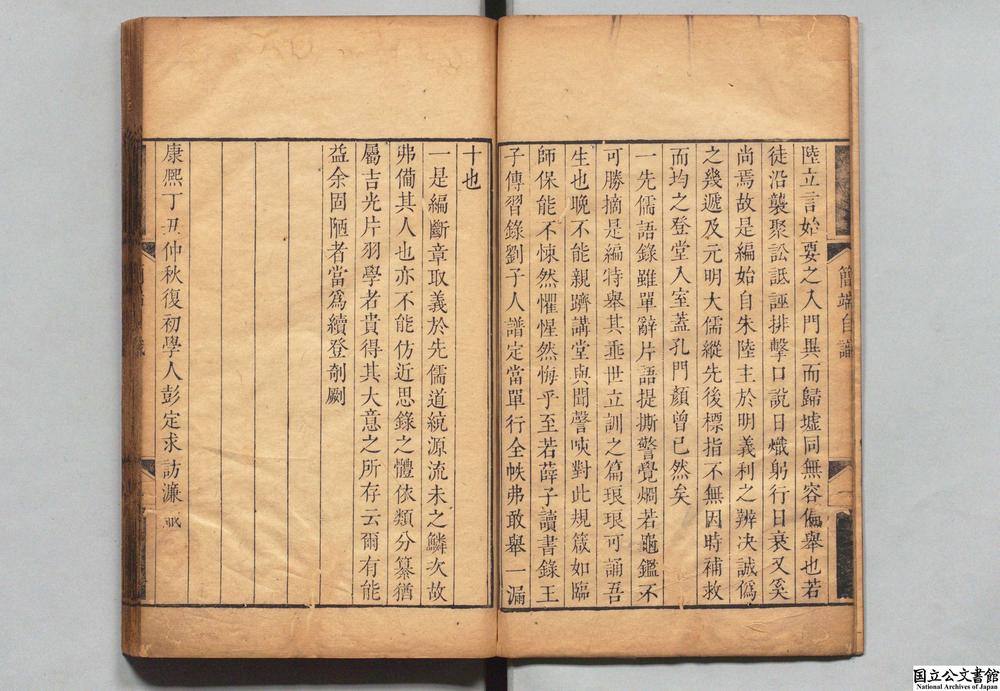 簡端自識
陸立言始要之入門異而歸墟同無容偏舉也若
徒沿襲聚訟詆誣排擊口說日熾躬行日衰又奚
尚焉故是編始自朱陸主於明義利之辨决誠僞
之幾遞及元明大儒縱先後標指不無因時補救
而均之登堂入室蓋孔門顏曾已然矣
一先儒語錄雖單辭片語提撕警覺烱若龜鑑不
可勝摘是編特舉其垂世立訓之篇琅琅可誦吾
生也晚不能親躋講堂與聞謦欬對此規箴如臨
師保能不悚然懼惺然悔乎至若薛子讀書錄王
子傳習錄劉子人譜定當單行全帙弗敢舉一漏
十也
一是編斷章取義於先儒道統源流未之鱗次故
弗備其人也亦不能仿近思錄之體依類分纂猶
屬吉光片羽學者貴得其大意之所存云爾有能
益余固陋者當爲續登剞劂
康熙丁丑仲秋復初學人彭定求訪濂氏
国立公文書館
National Archives of Japan